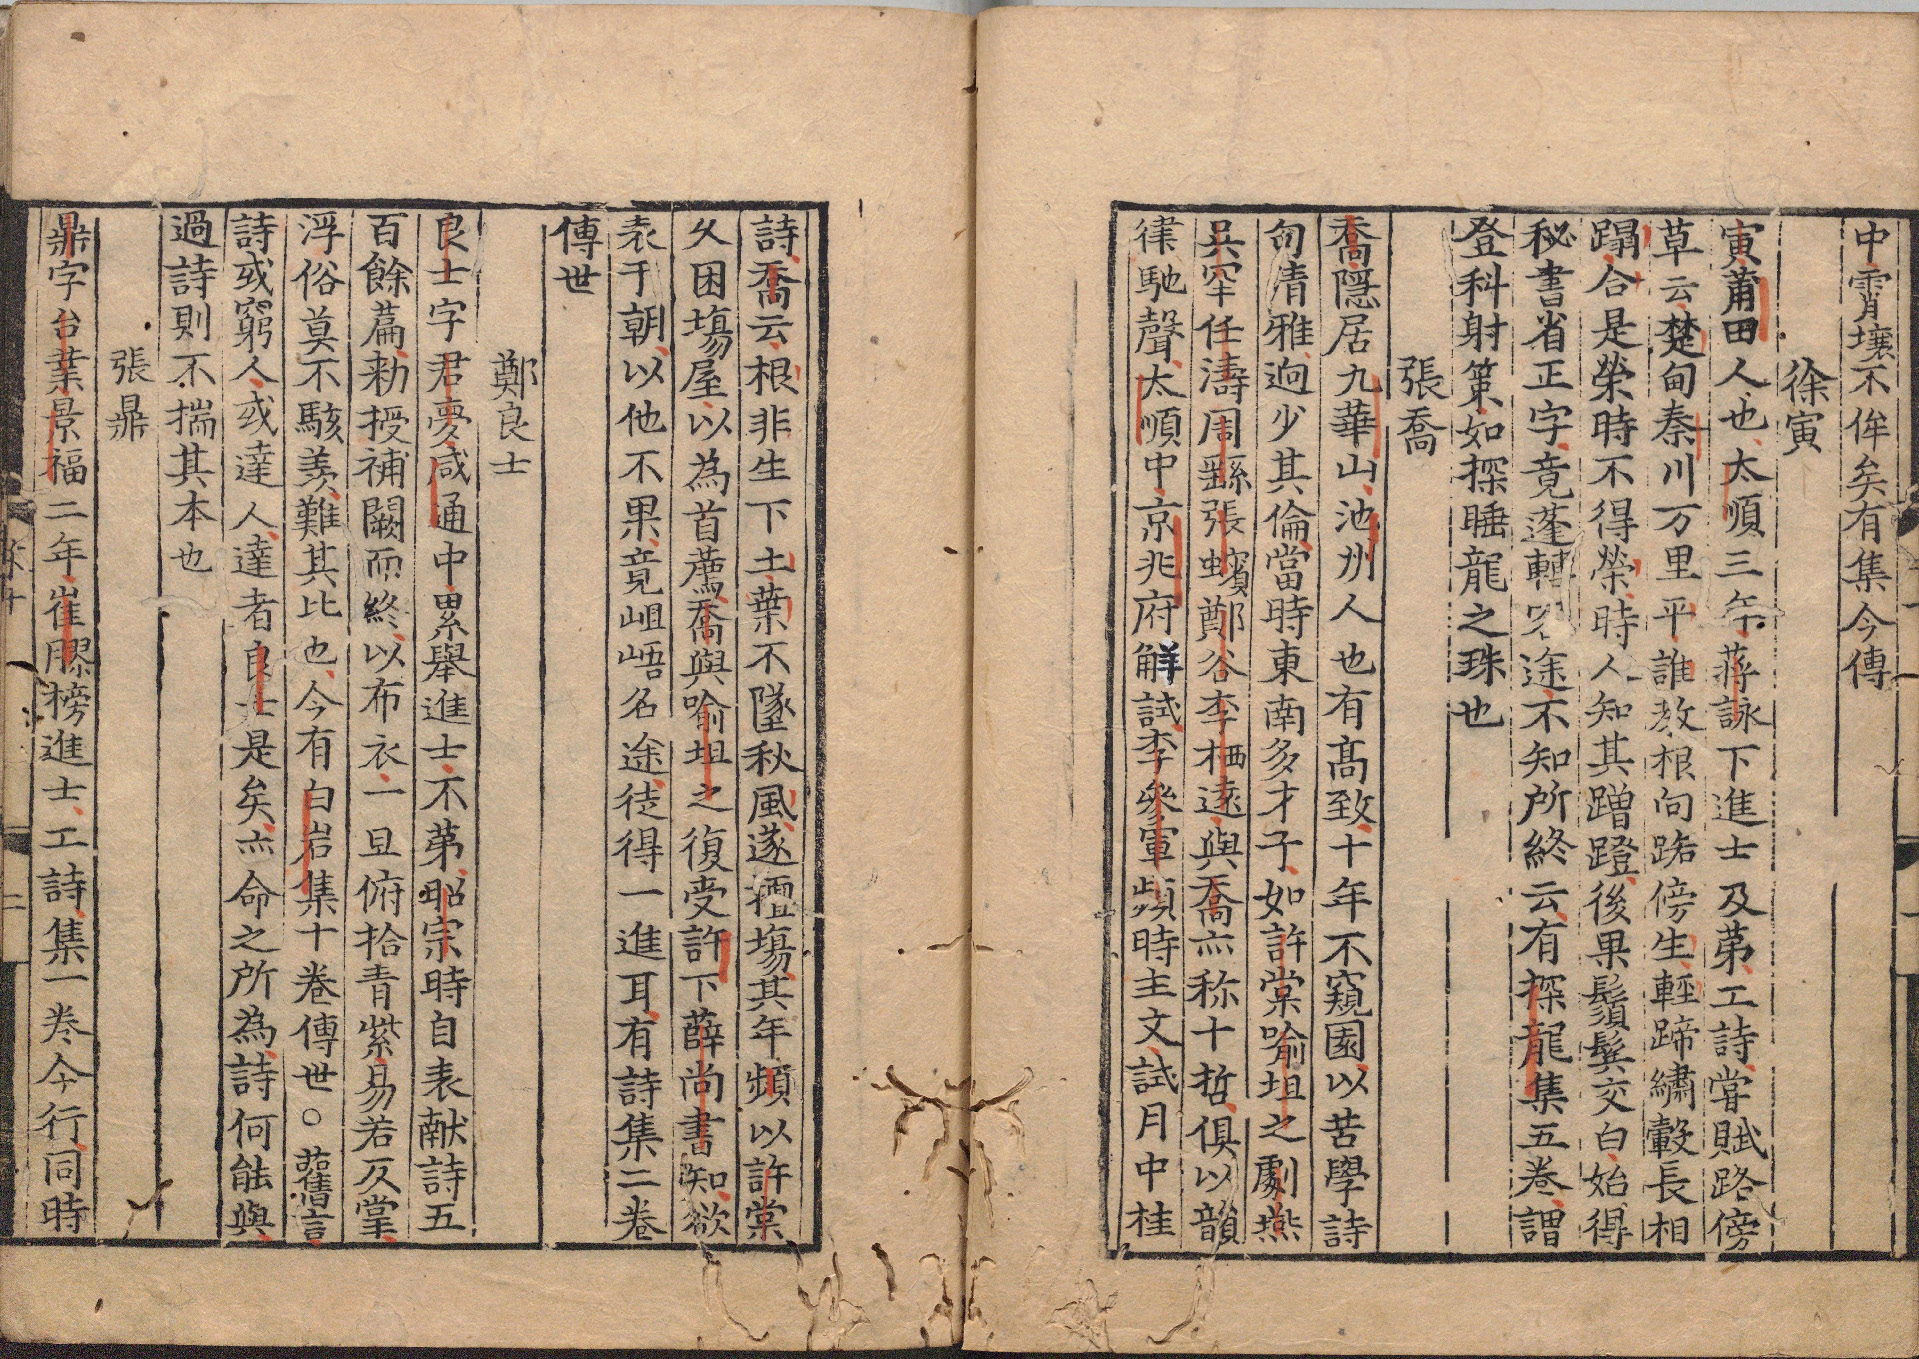 中霄壤不侔矣有集今傳
徐寅
寅莆田人也大順三年蔣詠下進士及苐工詩甞賦路傍
草云楚甸秦川万里平誰教根向路傍生輕蹄繡轂長相
蹋合是榮時不得榮時人知其蹭蹬後果鬚鬢交白始得
秘書省正字竟蓬轉客途不知所終云有探龍集五卷謂
登科射策如探睡龍之珠也
張喬
喬隱居九華山池州人也有髙致十年不窺園以苦學詩
句清雅逈少其倫當時東南多才子如許棠喻坦之劇燕
吴罕任濤周繇張蠙鄭谷李栖遠與喬亦称十哲俱以韻
律馳聲大順中京兆府解試李參軍頻時主文試月中桂
詩喬云根非生下土葉不墜秋風遂擅塲其年頻以許棠
乆困塲屋以為首薦喬與喻坦之復受許下薛尚書知欲
表于朝以他不果竟岨峿名途徒得一進耳有詩集二卷
傳世
鄭良士
良士字君夣咸通中累舉進士不苐昭宗時自表献詩五
百餘篇勑授補闕而終以布衣一旦俯拾青紫易若反掌
浮俗莫不駭羡難其比也今有白岩集十卷傳世○舊言
詩或窮人或達人達者良士是矣亦命之所為詩何能與
過詩則不揣其本也
張鼎
鼎字台業景福二年崔膠榜進士工詩集一卷今行同時